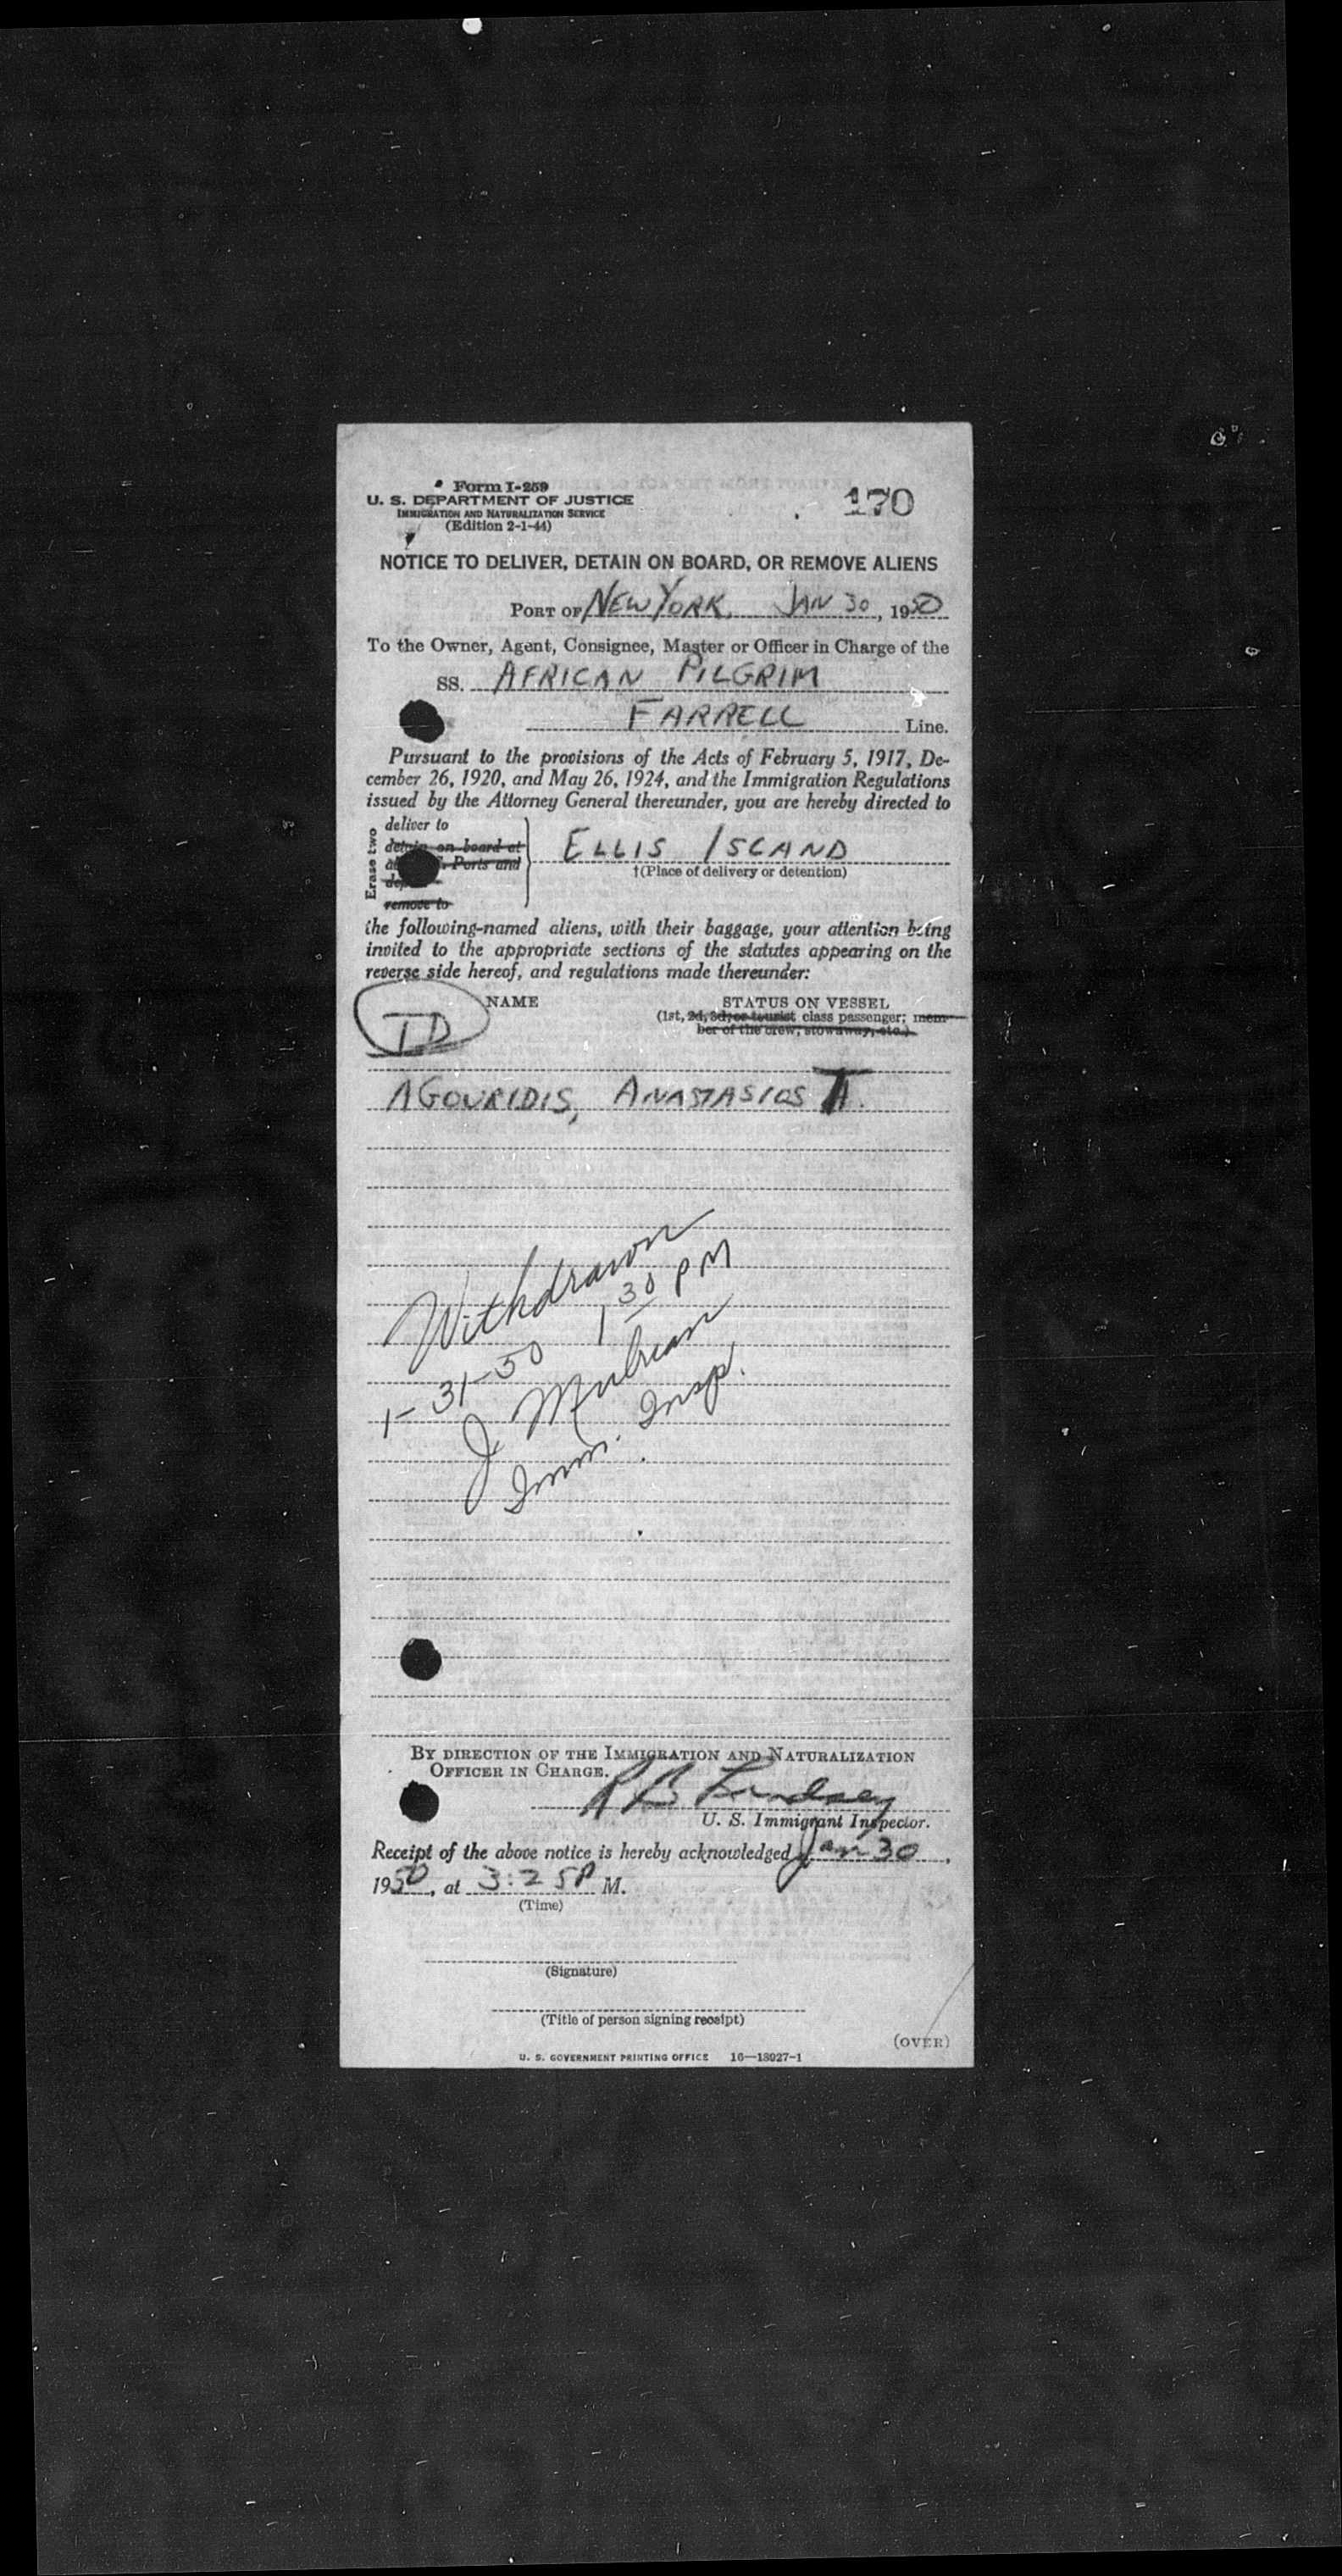 Form I-259
U. S. DEPARTMENT OF JUSTICE
IMMIGRATION AND NATURALIZATION SERVICE
(Edition 2-1-44)
170
NOTICE TO DELIVER, DETAIN ON BOARD, OR REMOVE ALIENS
PORT OF NEW YORK, JAN 30, 1950
To the Owner, Agent, Consignee, Master or Officer in Charge of the
SS. AFRICAN PILGRIM
FARRELL Line.
Pursuant to the provisions of the Acts of February 5, 1917, De-
cember 26, 1920, and May 26, 1924, and the Immigration Regulations
issued by the Attorney General thereunder, you are hereby directed to
Erase two
deliver to
detain on board at
Ports and
remove to
ELLIS ISLAND
†(Place of delivery or detention)
the following-named aliens, with their baggage, your attention being
invited to the appropriate sections of the statutes appearing on the
reverse side hereof, and regulations made thereunder:
NAME STATUS ON VESSEL
(1st, 2d, 3d, or tourist class passenger; mem-
ber of the crew, stowaway, etc.)
TD
AGOURIDIS, ANASTASIOS A.
Withdrawn
1-31-50 1 30 PM
J.
Imm. Insp.
BY DIRECTION OF THE IMMIGRATION AND NATURALIZATION
OFFICER IN CHARGE.
Lindsey
U. S. Immigrant Inspector.
Receipt of the above notice is hereby acknowledged Jan 30,
1950, at 3:25P M.
(Time)
(Signature)
(Title of person signing receipt)
(OVER)
U. S. GOVERNMENT PRINTING OFFICE 16—18027-1